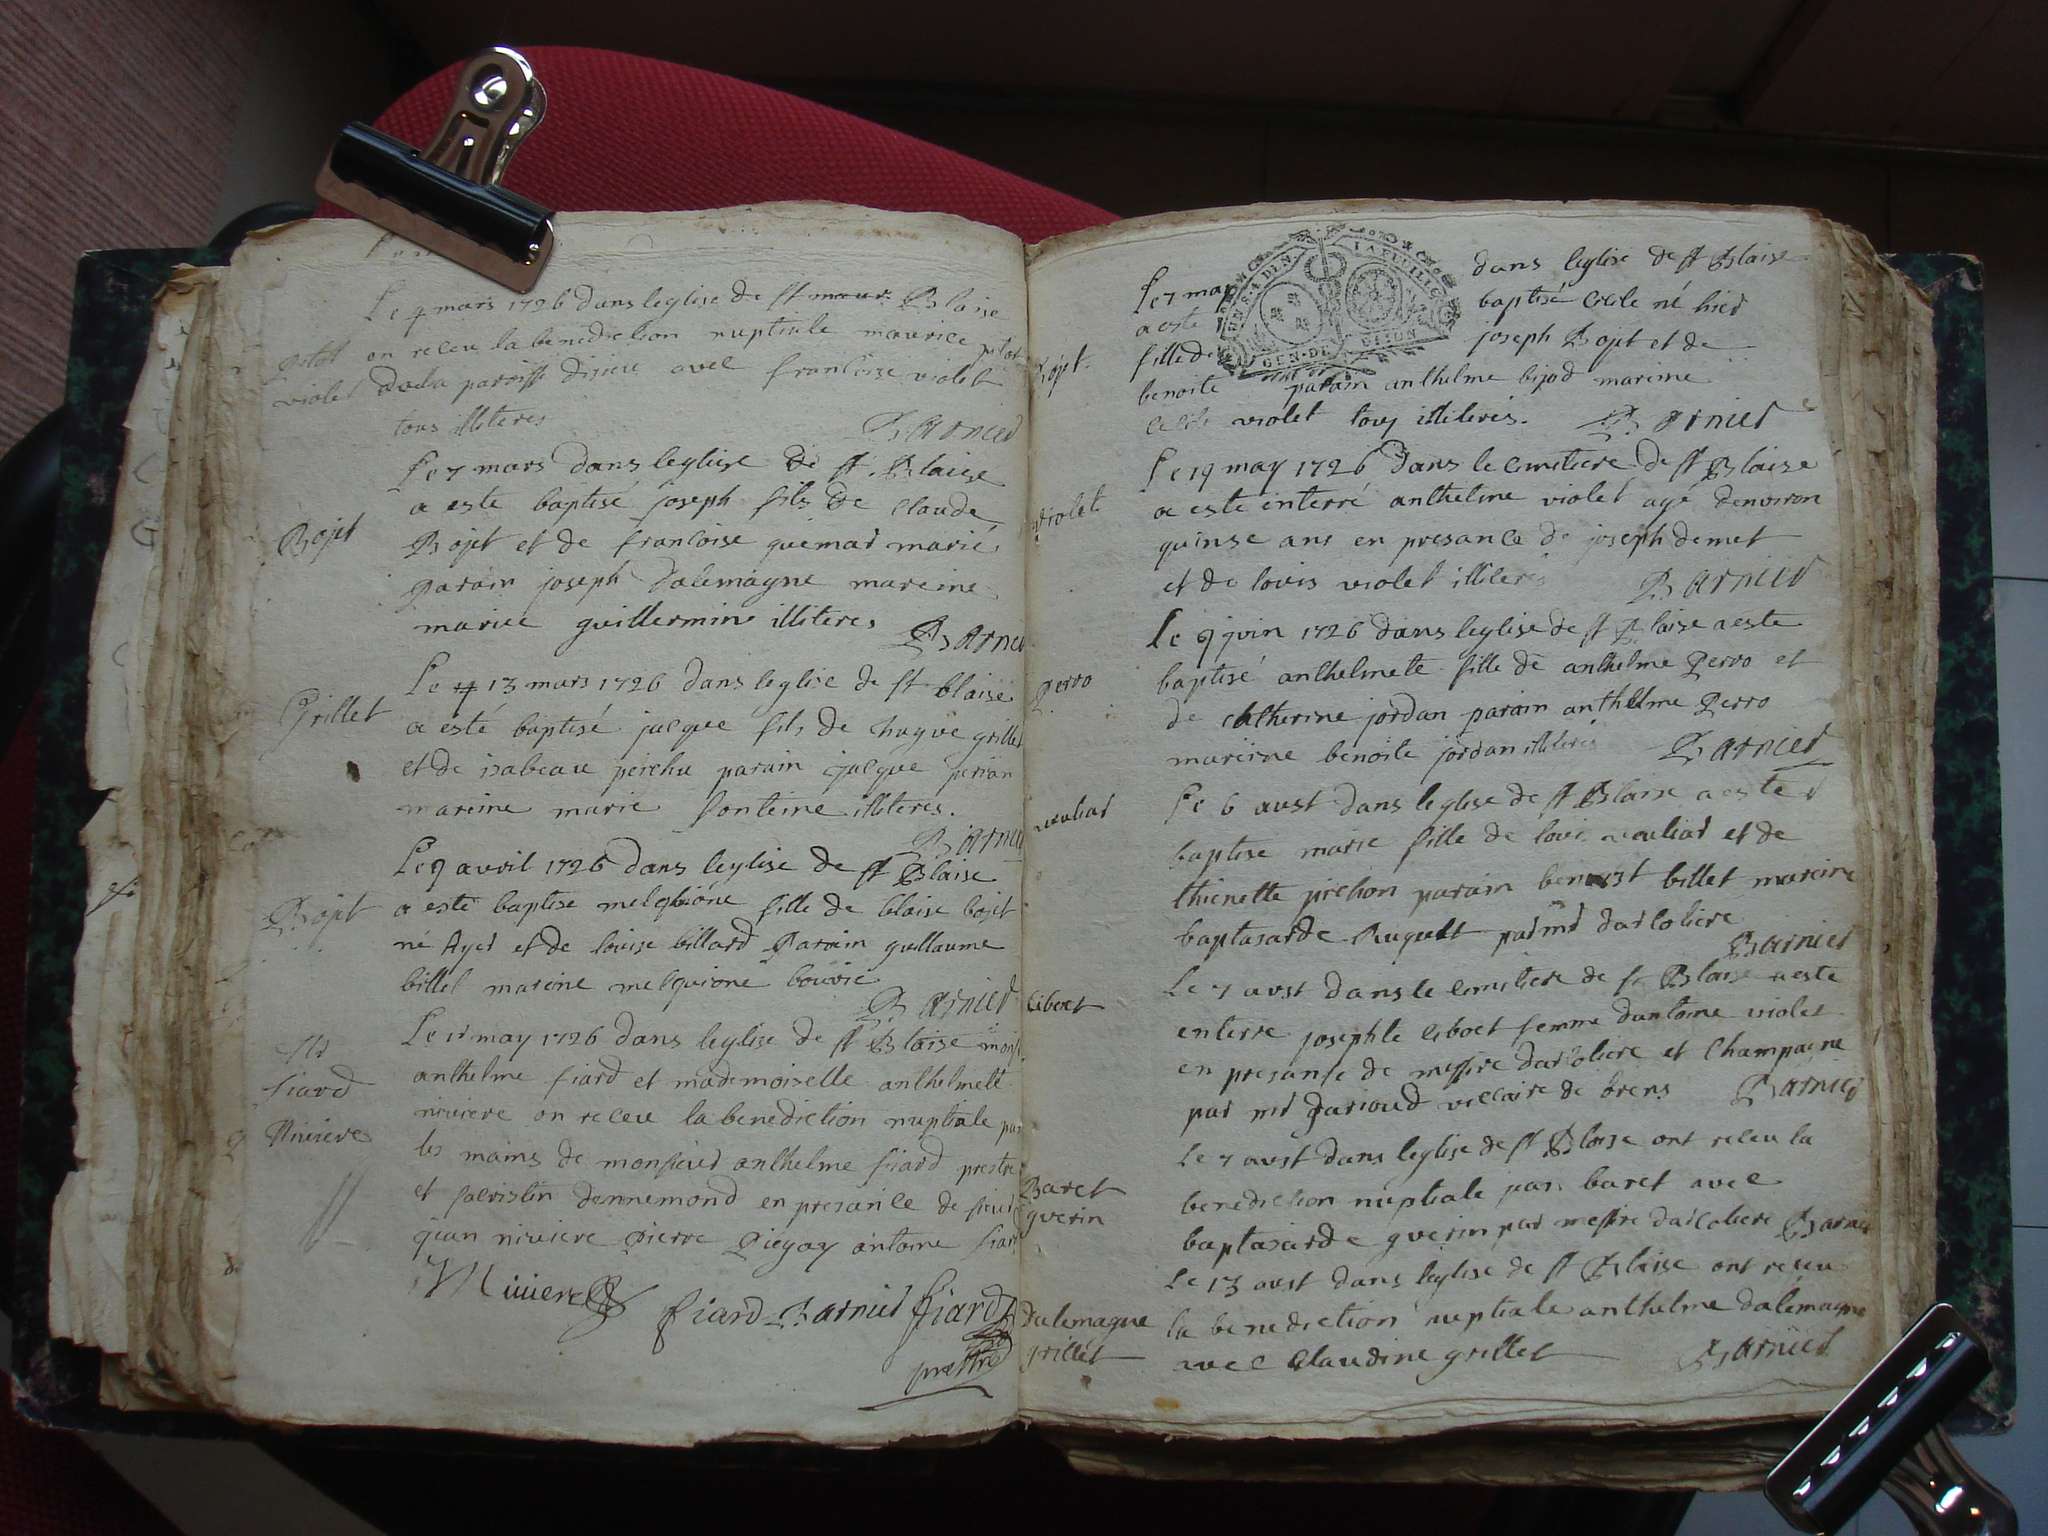 Le 4 mars 1726 dans leglise de st maur Blaise
en receu la benediction nuptiale maurice pitot
de la paroisse disieu avec francoise violet
tous illiteres
Barnied
Pitot
violet
Le 7 mars dans leglise de st Blaise
a este baptisé joseph fils de claude
Bojet et de francoise quemar mariés
parain joseph dalemagne mareine
mariee guillermin illiteres
Barnied
Bojet
Le 13 mars 1726 dans leglise de st blaise
a esté baptisé jacque fils de hugue grillet
et de isabeau perchu parain jacque
mareine marie fonteine illiteres.
Barnied
Grillet
Le 9 avril 1726 dans leglise de st Blaise
a este baptise melquione fille de blaise bojet
né hyer et de louise billard Parain guillaume
billet mareine melquione bouvie
Barnied
Bojet
Le 11 may 1726 dans leglise de st Blaise mons
anthelme fiard et mademoiselle anthelmett
niviere on receu la benediction nuptiale par
les mains de monsieur anthelme fiard prestre
et sacristin dennemond en presance de sieur
jean niviere pierre antoine fiard
Sr
fiard
Niviere
Niviere fiard Barnied fiard
prestre
Le 7 may dans leglise de st Blaise
a este baptisé Cecile né hier
fille de joseph Bojet et de
benoite parain anthelme bijod mareine
Cecile violet tous illiteres. Barnied
Bojet
GEN. DE
Le 19 may 1726 dans le cimitiere de st Blaise
a este enterré anthelme violet agé denviron
quinse ans en presance de joseph demet
et de louis violet illiteres Barnied
violet
Le 9 juin 1726 dans leglise de st Blaise a este
baptisé anthelmete fille de anthelme Perro et
de catherine jordan parain anthelme Perro
mareine benoite jordan illiteres Barnied
Perro
Le 6 aust dans leglise de st Blaise a este
baptise marie fille de louis neuliad et de
thienette pichon parain benoist billet mareine
baptasarde Huguet par mr darcoliere
Barnied
neuliad
Le 7 aust dans le cimitiere de st Blaise a este
enterre josephte ciboet femme dantoine violet
en presance de messire darcoliere et Champagne
par mr Jarioud viccaire de brens Barnied
Ciboet
Le 7 aust dans leglise de st Blaise ont receu la
benediction nuptiale baret avec
baptasarde guerin par messire darcoliere Barnied
Baret
guerin
Le 13 aust dans leglise de st Blaise ont receu
la benediction nuptiale anthelme dalemagne
avec Claudine grillet Barnied
dalemagne
grillet